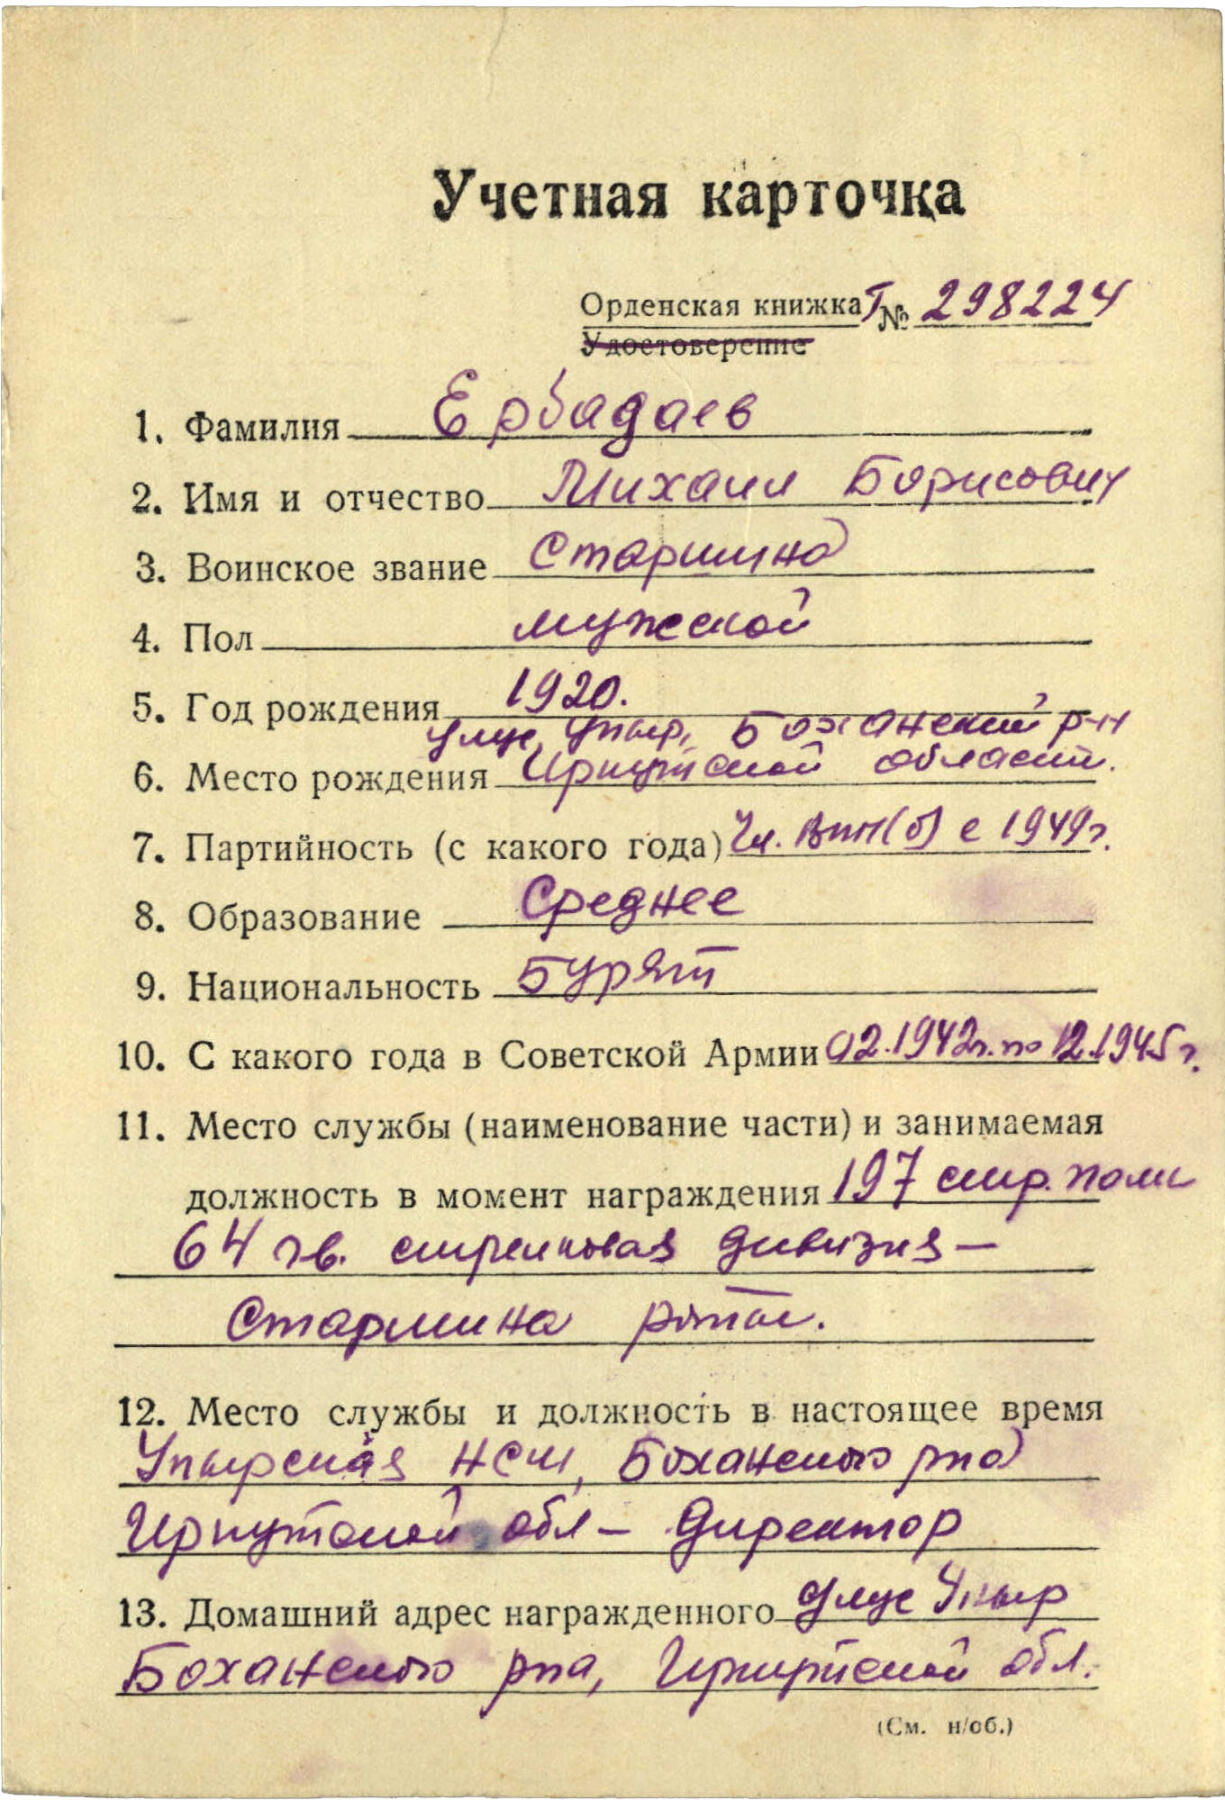 Учетная карточка
Орденская книжка Т № 298224
Удостоверение
1. Фамилия Ербадаев
2. Имя и отчество Михаил Борисович
3. Воинское звание Старшина
4. Пол мужской
5. Год рождения 1920.
улус, Укыр, Боханский р-н
6. Место рождения Иркутской области.
7. Партийность (с какого года) Чл. ВКП(б) с 1949г.
8. Образование Среднее
9. Национальность Бурят
10. С какого года в Советской Армии 02.1942г. по 12.1945г.
11. Место службы (наименование части) и занимаемая
должность в момент награждения 197 стр. полк
64 гв. стрелковая дивизия –
Старшина роты.
12. Место службы и должность в настоящее время
Укырская НСШ, Боханского р-на
Иркутской обл – Директор
13. Домашний адрес награжденного Улус Укыр
Боханского р-на, Иркутской обл.
(См. н/об.)